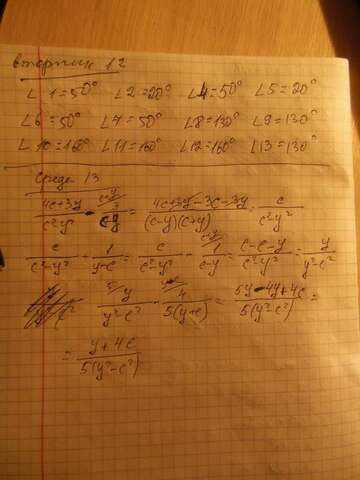 вторник 12
∠1=50° ∠2=20° ∠4=50° ∠5=20°
∠6=50° ∠7=50° ∠8=130° ∠9=130°
∠10=160° ∠11=160° ∠12=160° ∠13=130°
Среда 13
(4c+3y)/(c²-y²) - 3/(c-y) = (4c+3y-3c-3y)/((c-y)(c+y)) = c/(c²-y²)
c/(c²-y²) - 1/(y+c) = c/(c²-y²) - 1/(c-y) = (c-c-y)/(c²-y²) = y/(y²-c²)
y/(y²-c²) - 4/(5(y+c)) = (5y-4y+4c)/(5(y²-c²)) =
= (y+4c)/(5(y²-c²))